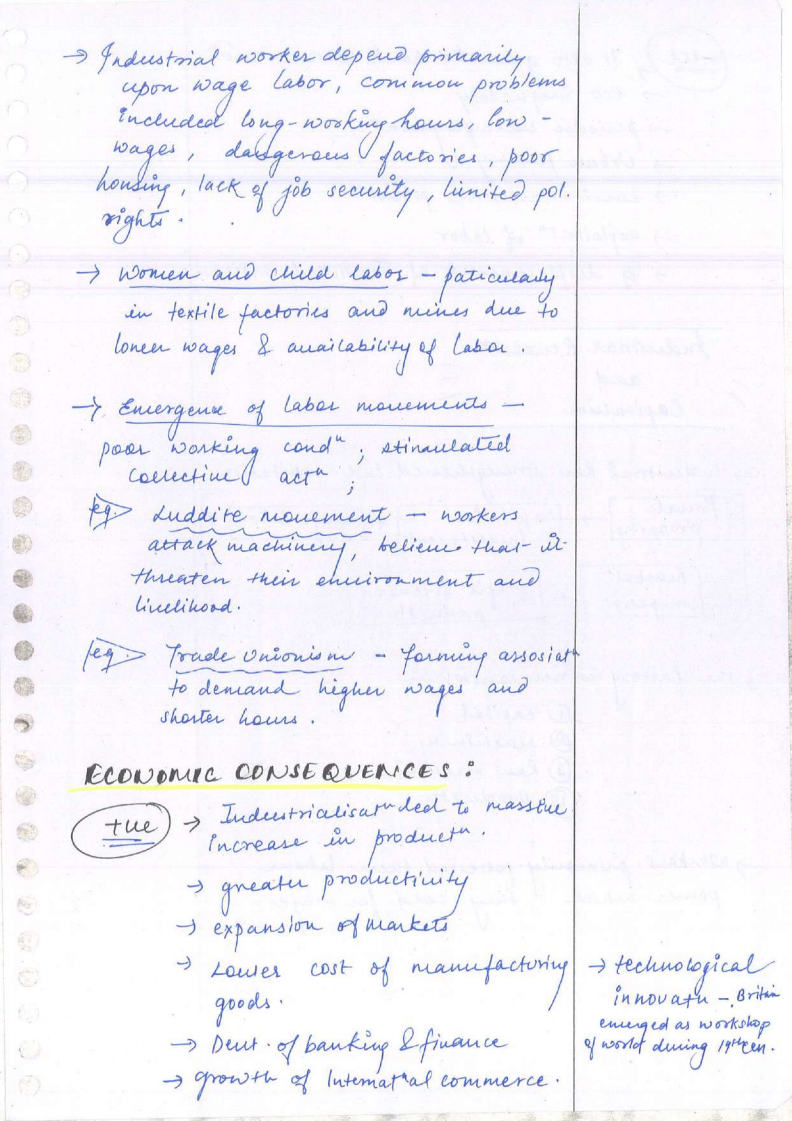 → Industrial worker depend primarily
upon wage labor, common problems
included long-working hours, low -
wages, dangerous factories, poor
housing, lack of job security, limited pol.
rights.
→ Women and child labor – paticularly
in textile factories and mines due to
lower wages & availability of labor
→ Emergence of labor movements –
poor working condⁿ ; stimulated
collective actⁿ ;
eg> Luddite movement – workers
attack machinery, believe that it
threaten their environment and
livelihood.
eg> Trade Unionism – forming assosiatⁿ
to demand higher wages and
shorter hours.
ECONOMIC CONSEQUENCES :
+ve → Industrialisatⁿ led to massive
increase in productⁿ.
→ greater productivity
→ expansion of markets
→ Lower cost of manufacturing
goods.
→ Devt. of banking & finance
→ growth of Internatⁿal commerce.
→ technological
innovatn – Britain
emerged as workshop
of world during 19th cen.